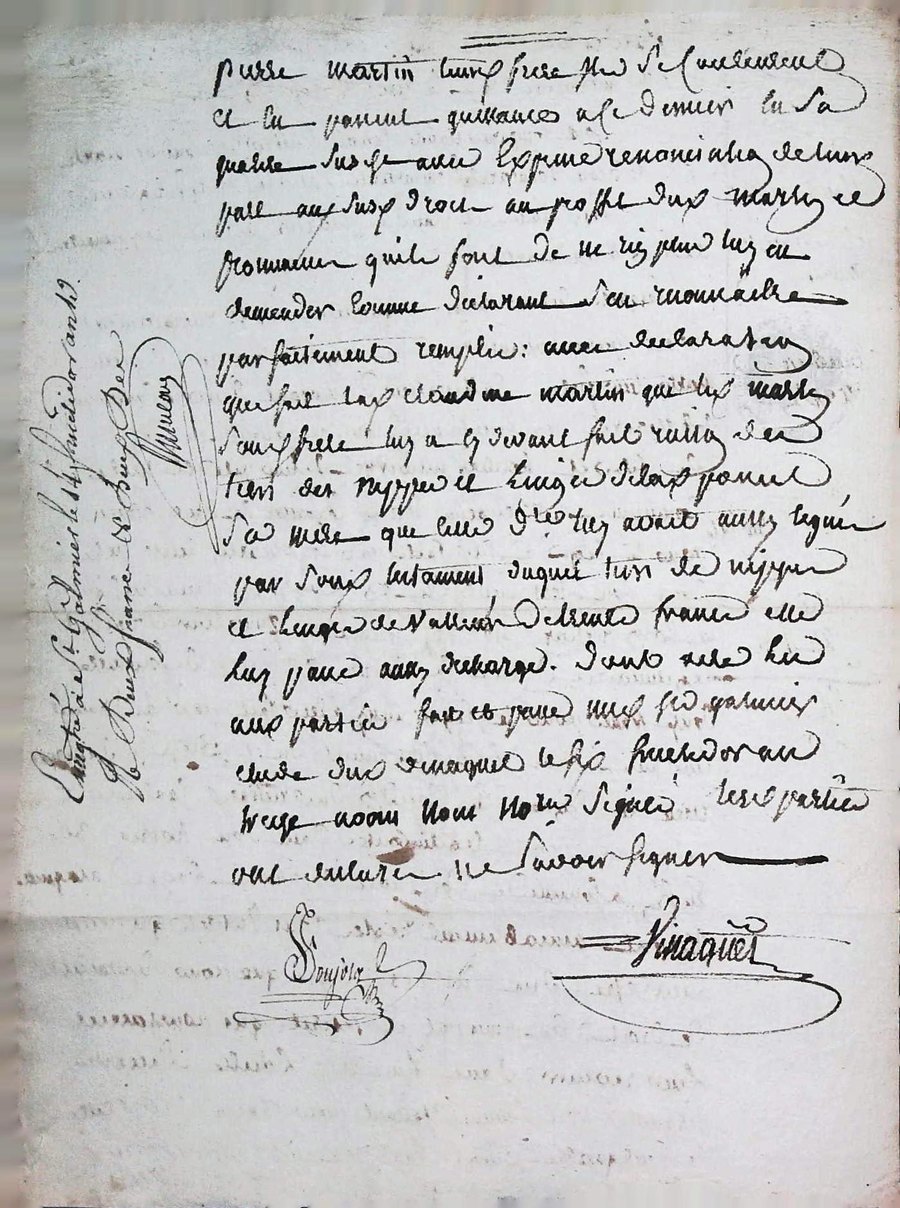 pierre martin leurs frere pnt de Consentent
et lui passent quittances a ce dernier en sa
qualité susd. avec Expresse renonciation de leurs
part aux susd droits au proffit dud martin et
promesse quils font de ne rien plus luy en
demender comme declarant s'en reconnaitre
parfaitement remplies: avec declaration
que fait lad claudine martin que led martin
sond frere luy a cy devant fait raison des
tiers des nippes et linges de lad ponsel
sa mere que celle d.te luy avoit aussy legué
par sond testament duquel tiers de nippes
et linges de valleur de trente francs elle
luy passe aussy decharge. dont acte leu
aux parties fait et passé aud st galmier
etude dud vinaquet le six fructidor an
treize avons nous notres signé lesd parties
ont declaré ne savoir signer
Vinaquet
Enregtré à St Galmier le 14 fructidor an 13
Rs Deux francs